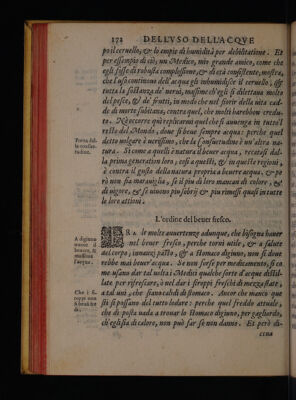 172 DELL'VSO DELL'ACQVE
po il ceruello, & lo empio di humidità per debilitatione. Et
per essempio di ciò, un Medico, mio grande amico, come che
egli fusse di robusta complessione, & di età consistente, mostra,
che l'uso continouo dell'acqua gli inhumidisce il ceruello, &
tutta la sostanza de' nerui, massime ch'egli si dilettaua molto
del pesce, & de' frutti, in modo che nel fiorir della uita cad-
de di morte subitana, contra quel, che molti haurebbon credu-
to. Nè occorre quì replicarmi quel che si auuezza in tutto'l
resto del Mondo, doue si beue sempre acqua: perche quel
Forza del-
la consue-
tudine.
detto uolgare è uerissimo, che la consuetudine è un'altra na-
tura. Si come a quelli è natura il beuer acqua, recatasi dal-
la prima generation loro, così a questi, & in queste regioni,
è contra il gusto della natura propria a beuerne acqua. & pe-
rò non fia marauiglia, se li piu di loro mancan di colore, &
di uigore, & se uiuono piu sobrij & piu rimessi quasi in tutte
le loro attioni.
L'ordine del beuer fresco.
A digiuno
nuoce il
beuere, &
massime
l'acqua.
HORA le molte auuertenze adunque, che bisogna hauer
nel beuer fresco, perche torni utile, & a salute
del corpo, innanzi pasto, & a stomaco digiuno, non si doue
rebbe mai beuer' acqua. Se non forse per medicamento, si co-
me usano dar tal uolta i Medici qualche sorte d'acque distil-
late per rifrescare, ò uel dar i siroppi freschi di mezza state,
Che i si-
roppi non
a tal uni, che siano caldi di stomaco. Ancor che manco que
sti si possano del tutto lodare: perche quel freddo attuale,
che di posta uada a trouar lo stomaco digiuno, per gagliardo,
ch'egli sia di calore, non può far se non danno. Et però di-
cena